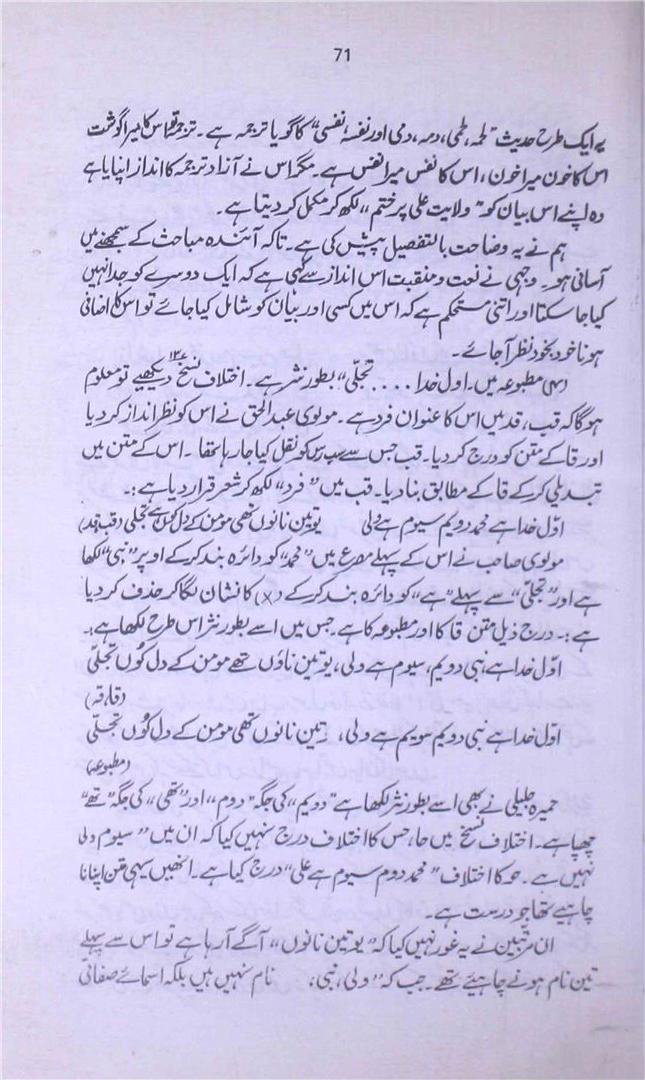 71
یہ ایک طرح حدیث ”لحمہ، لحمی، دمہ، دمی اور نفسہ، نفسی“ کا گویا ترجمہ ہے۔ ترجمہ تو اس کا میرا گوشت
اس کا خون میرا خون، اس کا نفس میرا نفس ہے۔ مگر اس نے آزاد ترجمہ کا انداز اپنایا ہے
وہ اپنے اس بیان کو ”ولایت علی پر ختم“ لکھ کر مکمل کر دیتا ہے۔
ہم نے یہ وضاحت بالتفصیل پیش کی ہے۔ تاکہ آئندہ مباحث کے سمجھنے میں
آسانی ہو۔ وجہی نے نعت و منقبت اس انداز سے کہی ہے کہ ایک دوسرے کو جدا نہیں
کیا جا سکتا اور اتنی مستحکم ہے کہ اس میں کسی اور بیان کو شامل کیا جائے تو اس کا اضافی
ہونا خود بخود نظر آ جائے۔
مطبوعہ میں۔ اول خدا .... تجلّی“ بطور نثر ہے۔ اختلاف نسخ ۱۳۶ دیکھیے تو معلوم
ہوگا کہ قب، قد میں اس کا عنوان فرد ہے۔ مولوی عبدالحق نے اس کو نظر انداز کر دیا
اور قا کے متن کو درج کر دیا۔ قب جس سے سب رس کو نقل کیا جا رہا تھا۔ اس کے متن میں
تبدیلی کر کے قا کے مطابق بنا دیا۔ قب میں ”فرد“ لکھ کر شعر قرار دیا ہے :۔
اوّل خدا ہے محمد دویم سیوم ہے ولی یو تین نانوں تھی مومن کے دل کوں ہے تجلی (قب، قد)
مولوی صاحب نے اس کے پہلے مصرع میں ”محمد“ کو دائرہ بند کر کے اوپر ”نبی“ لکھا
ہے اور ”تجلّی“ سے پہلے ”ہے“ کو دائرہ بند کر کے (×) کا نشان لگا کر حذف کر دیا
ہے :۔ درج ذیل متن قا کا اور مطبوعہ کا ہے۔ جس میں اسے بطور نثر اس طرح لکھا ہے :۔
اوّل خدا ہے نبی دویم، سیوم ہے ولی، یو تین ناؤں تھے مومن کے دل کوں تجلّی
(قا، قہ)
اوّل خدا ہے نبی دویم سویم ہے ولی، و تین نانوں تھی مومن کے دل کوں تجلّی
(مطبوعہ)
حمیرہ جلیلی نے بھی اسے بطور نثر لکھا ہے ”دویم“ کی جگہ ”دوم“ اور ”تھی“ کی جگہ ”تھے“
چھپا ہے۔ اختلاف نسخ میں حا، حس کا اختلاف درج نہیں کیا کہ ان میں ”سیوم ولی
نہیں ہے۔ حو کا اختلاف ”محمد دوم سیوم ہے علی“ درج کیا ہے۔ انھیں یہی متن اپنانا
چاہیے تھا جو درست ہے۔
ان مرتبین نے یہ غور نہیں کیا کہ ”یو تین نانوں“ آگے آ رہا ہے تو اس سے پہلے
تین نام ہونے چاہیئے تھے۔ جب کہ ”ولی، نبی، نام نہیں ہیں بلکہ اسمائے صفاتی